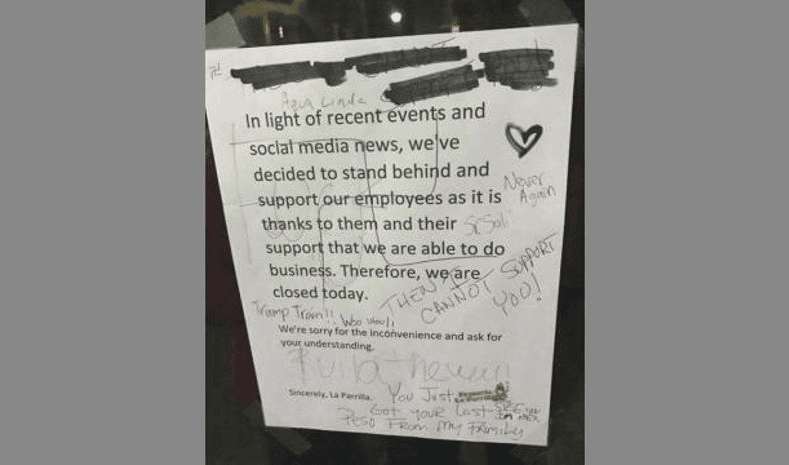 Agua Linda
In light of recent events and
social media news, we've
decided to stand behind and
support our employees as it is
Never
Again
thanks to them and their
support that we are able to do
business. Therefore, we are
closed today.
THEN I CANNOT SUPPORT
YOU!
Trump Train!! Woo Woo!!
We're sorry for the inconvenience and ask for
your understanding.
Sincerely, La Parrilla.
You Just
Got your Last
Peso From My Family